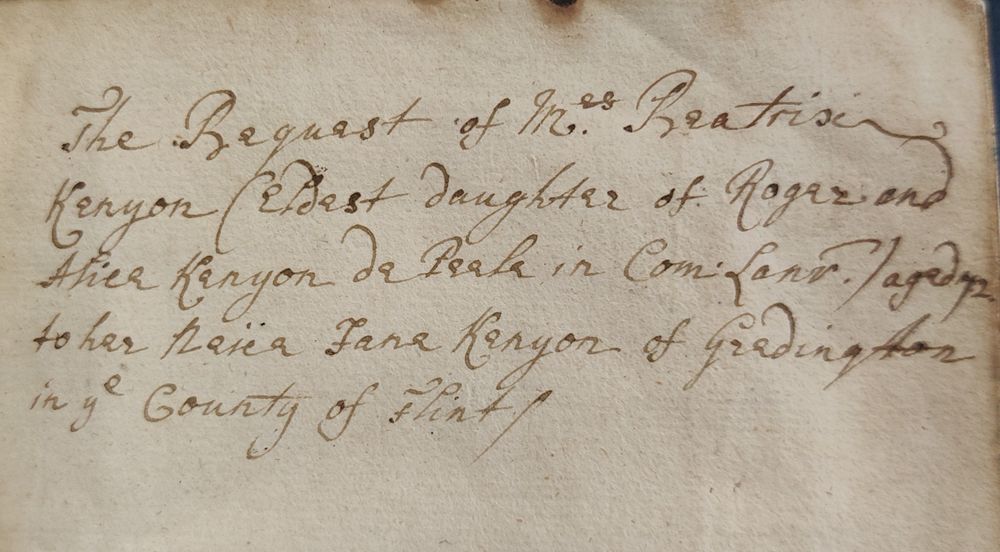 The Request of M.rs Beatrix
Kenyon (eldest daughter of Roger and
Alice Kenyon de Peele in Com: Lanr.) aged 72
to her Neice Jane Kenyon of Gredington
in ye County of Flint/